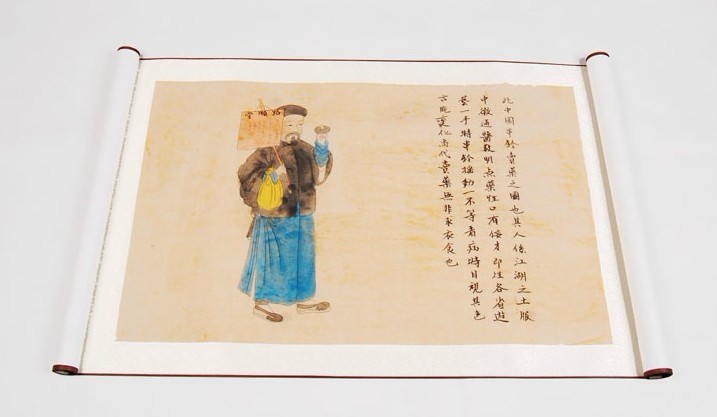 此中國串鈴賣藥之圖也其人係江湖之士服
中微通醫数明点藥性口有佞才即往各省遊
藝一手持串鈴搖動一不等看病時目視其色
言能变化為代賣藥無非求衣食也